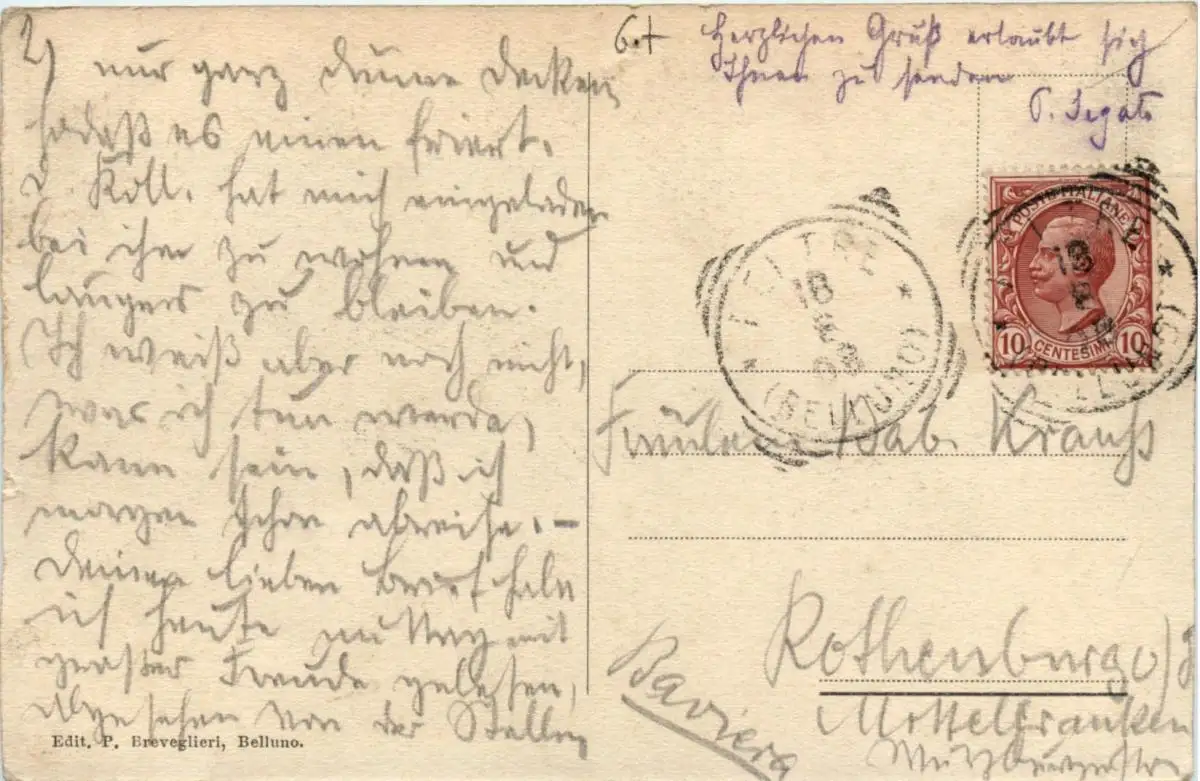 2)
nur ganz dünne Decken
sodaß es einen friert.
Koll. hat mich eingeladen
bei ihm zu wohnen und
länger zu bleiben.
Ich weiß aber noch nicht,
was ich tun werde,
kann sein, daß ich
morgen schon abreise. –
Deinen lieben Brief habe
ich heute mit
großer Freude gelesen,
abgesehen von der Stelle
Edit. P. Breveglieri, Belluno.
Herzlichen Gruß erlaubt sich
Ihnen zu senden
P. Segato
POSTE ITALIANE
10 CENTESIMI 10
FELTRE
18
(BELLUNO)
Fräulein Bab. Krauß
Rothenburg o/T
Mittelfranken
Baviera